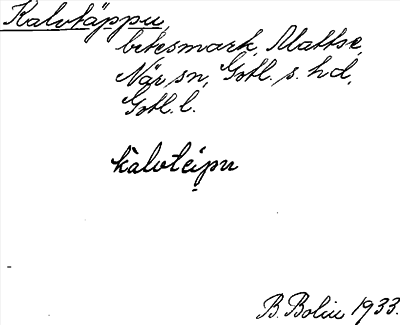 Kalvtäppu,
betesmark, Mattse,
När sn, Gotl. s. hd,
Gotl. l.
kalvteipu
B. Bolin 1933.